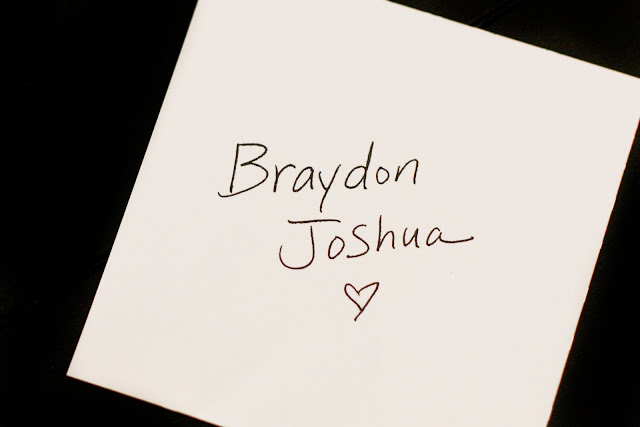 Braydon
Joshua